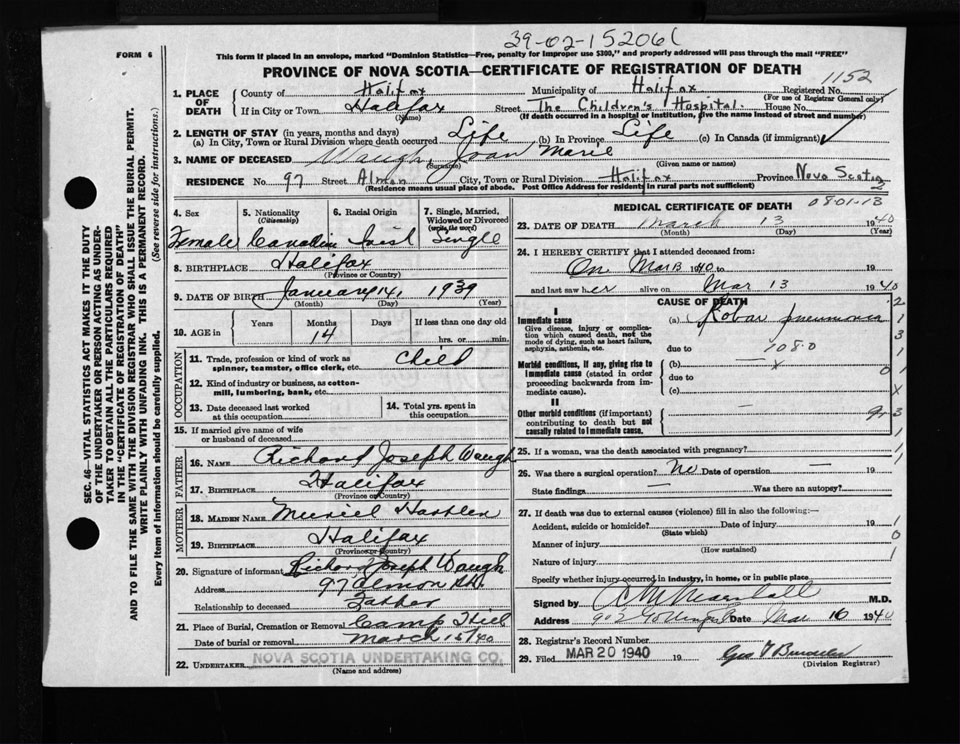 39-02-152061
FORM 6
This form if placed in an envelope, marked "Dominion Statistics—Free, penalty for improper use $300," and properly addressed will pass through the mail "FREE"
PROVINCE OF NOVA SCOTIA—CERTIFICATE OF REGISTRATION OF DEATH
1152
1. PLACE OF DEATH County of Halifax Municipality of Halifax Registered No.
(For use of Registrar General only)
If in City or Town Halifax Street The Children's Hospital. House No.
(Name) (If death occurred in a hospital or institution, give the name instead of street and number)
2. LENGTH OF STAY (in years, months and days)
(a) In City, Town or Rural Division where death occurred Life (b) In Province Life (c) In Canada (if immigrant)
3. NAME OF DECEASED Waugh, Joan Marie
(Surname) (Given name or names)
RESIDENCE No. 97 Street Almon City, Town or Rural Division Halifax Province Nova Scotia
(Residence means usual place of abode. Post Office Address for residents in rural parts not sufficient)
2
4. Sex
Female
5. Nationality
(Citizenship)
Canadian
6. Racial Origin
Irish
7. Single, Married, Widowed or Divorced
(write the word)
Single
8. BIRTHPLACE Halifax
(Province or Country)
9. DATE OF BIRTH January 14, 1939
(Month) (Day) (Year)
10. AGE in Years Months Days If less than one day old
14 hrs. or min.
OCCUPATION
11. Trade, profession or kind of work as spinner, teamster, office clerk, etc. Child
12. Kind of industry or business, as cotton-mill, lumbering, bank, etc.
13. Date deceased last worked at this occupation
14. Total yrs. spent in this occupation
15. If married give name of wife or husband of deceased
FATHER
16. NAME Richard Joseph Waugh
17. BIRTHPLACE Halifax
(Province or Country)
MOTHER
18. MAIDEN NAME Muriel
19. BIRTHPLACE Halifax
(Province or Country)
20. Signature of informant Richard Joseph Waugh
Address 97 Almon St.
Relationship to deceased Father
21. Place of Burial, Cremation or Removal Camp Hill
Date of burial or removal March 15/40
22. UNDERTAKER NOVA SCOTIA UNDERTAKING CO.
(Name and address)
MEDICAL CERTIFICATE OF DEATH 08-01-13
23. DATE OF DEATH March 13 1940
(Month) (Day) (Year)
24. I HEREBY CERTIFY that I attended deceased from:
On Mar 13 1940 to 19
and last saw her alive on Mar 13 1940
CAUSE OF DEATH
I
Immediate cause
Give disease, injury or complication which caused death, not the mode of dying, such as heart failure, asphyxia, asthenia, etc.
(a) Lobar pneumonia
due to 108.0
Morbid conditions, if any, giving rise to immediate cause (stated in order proceeding backwards from immediate cause).
(b) x
due to
(c)
II
Other morbid conditions (if important) contributing to death but not causally related to immediate cause.
2
1
3
1
0 1
X
3
1
25. If a woman, was the death associated with pregnancy?
26. Was there a surgical operation? No Date of operation —
State findings — Was there an autopsy?
27. If death was due to external causes (violence) fill in also the following:—
Accident, suicide or homicide? Date of injury 19
(State which)
Manner of injury
(How sustained)
Nature of injury
1
0
1
Specify whether injury occurred in industry, in home, or in public place
Signed by Marshall M.D.
Address Date Mar 16 1940
28. Registrar's Record Number
29. Filed MAR 20 1940 19 Geo
(Division Registrar)
SEC. 46—VITAL STATISTICS ACT MAKES IT THE DUTY
OF THE UNDERTAKER OR PERSON ACTING AS UNDER-
TAKER TO OBTAIN ALL THE PARTICULARS REQUIRED
IN THE "CERTIFICATE OF REGISTRATION OF DEATH"
AND TO FILE THE SAME WITH THE DIVISION REGISTRAR WHO SHALL ISSUE THE BURIAL PERMIT.
WRITE PLAINLY WITH UNFADING INK. THIS IS A PERMANENT RECORD.
Every item of information should be carefully supplied. (See reverse side for instructions.)